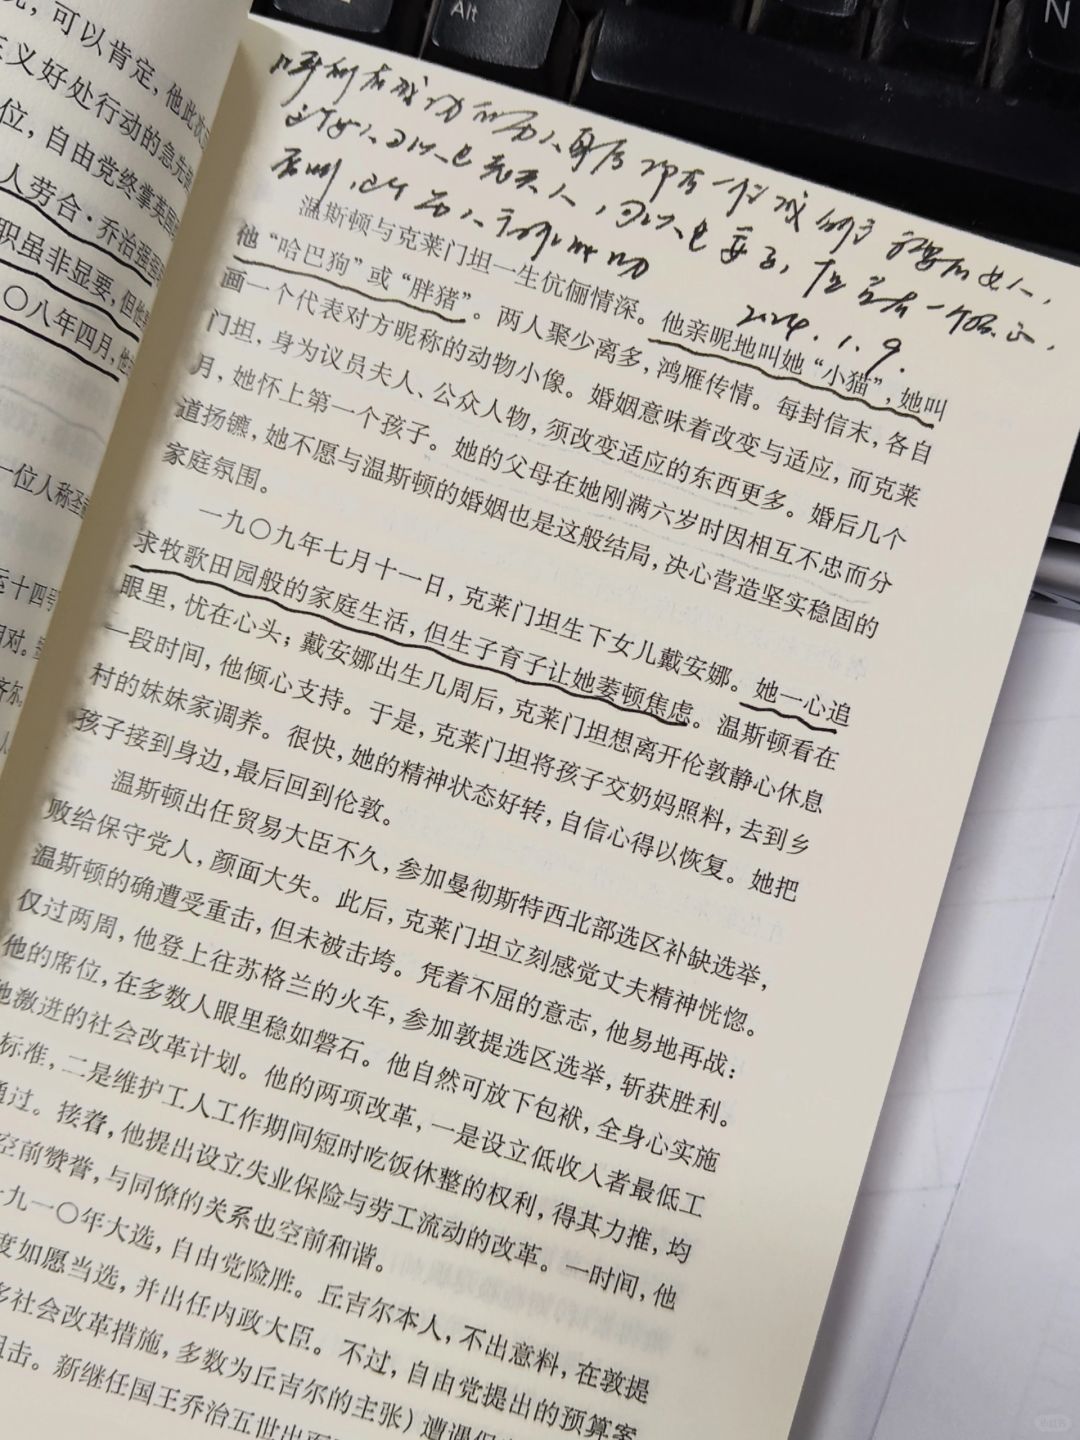 N
Alt
况，可以肯定，他此次
主义好处行动的急先
位，自由党终掌英国
人劳合·乔治强
职虽非显要，但他
〇八年四月，他
一位人称圣
运十四号
相对。
齐尔
人
每一个成功的男人身后都有一位成功的重要的女人，
这个女人可以是夫人，可以是妻子，
否则，这个男人
2024.1.9.
温斯顿与克莱门坦一生伉俪情深。他亲昵地叫她“小猫”，她叫
他“哈巴狗”或“胖猪”。两人聚少离多，鸿雁传情。每封信末，各自
画一个代表对方昵称的动物小像。婚姻意味着改变与适应，而克莱
门坦，身为议员夫人、公众人物，须改变适应的东西更多。婚后几个
月，她怀上第一个孩子。她的父母在她刚满六岁时因相互不忠而分
道扬镳，她不愿与温斯顿的婚姻也是这般结局，决心营造坚实稳固的
家庭氛围。
一九〇九年七月十一日，克莱门坦生下女儿戴安娜。她一心追
求牧歌田园般的家庭生活，但生子育子让她萎顿焦虑。温斯顿看在
眼里，忧在心头；戴安娜出生几周后，克莱门坦想离开伦敦静心休息
一段时间，他倾心支持。于是，克莱门坦将孩子交奶妈照料，去到乡
村的妹妹家调养。很快，她的精神状态好转，自信心得以恢复。她把
孩子接到身边，最后回到伦敦。
温斯顿出任贸易大臣不久，参加曼彻斯特西北部选区补缺选举，
败给保守党人，颜面大失。此后，克莱门坦立刻感觉丈夫精神恍惚。
温斯顿的确遭受重击，但未被击垮。凭着不屈的意志，他易地再战：
仅过两周，他登上往苏格兰的火车，参加敦提选区选举，斩获胜利。
他的席位，在多数人眼里稳如磐石。他自然可放下包袱，全身心实施
他激进的社会改革计划。他的两项改革，一是设立低收入者最低工
标准，二是维护工人工作期间短时吃饭休整的权利，得其力推，均
通过。接着，他提出设立失业保险与劳工流动的改革。一时间，他
空前赞誉，与同僚的关系也空前和谐。
一九一〇年大选，自由党险胜。丘吉尔本人，不出意料，在敦提
度如愿当选，并出任内政大臣。不过，自由党提出的预算案
多社会改革措施，多数为丘吉尔的主张）遭遇保
阻击。新继任国王乔治五世出面